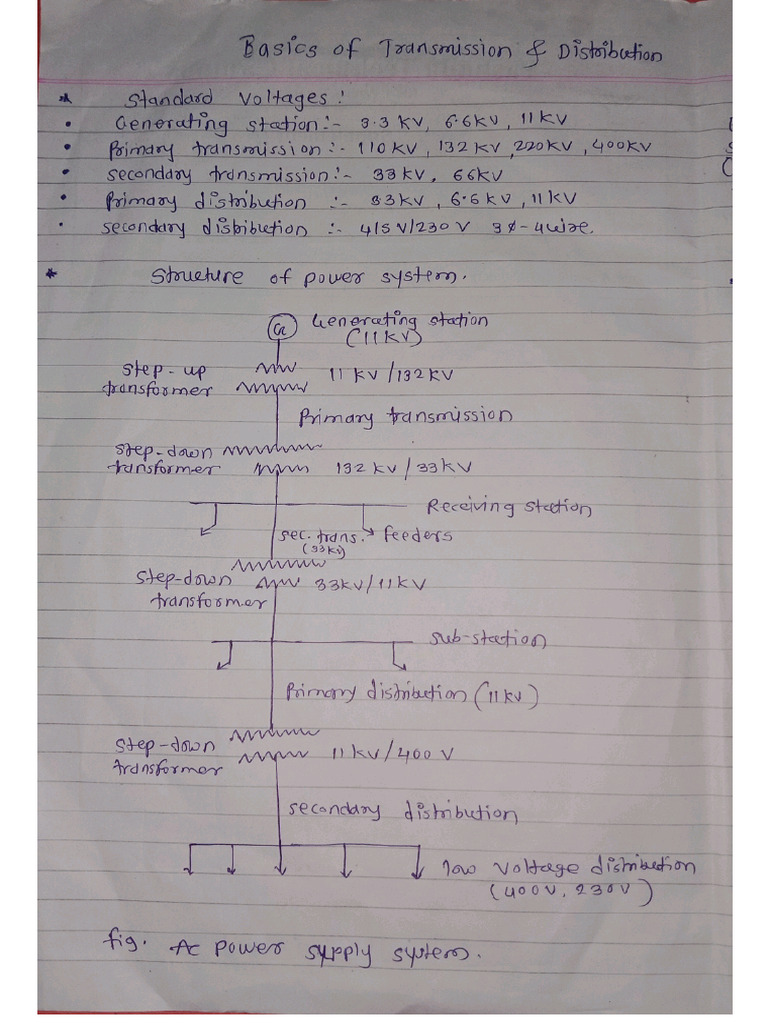 Basics of Transmission & Distribution
* Standard Voltages :
• Generating station :- 3.3 KV, 6.6KV, 11KV
• Primary transmission :- 110KV, 132KV, 220KV, 400KV
• secondary transmission :- 33KV, 66KV
• Primary distribution :- 33KV, 6.6KV, 11KV
• secondary disbibution :- 415V/230V 3φ-4wire.
* Structure of power system.
G Generating station
(11KV)
step-up
transformer
11 KV/132KV
Primary transmission
step-down
transformer
132 KV/33KV
Receiving station
sec. trans. feeders
(33KV)
step-down
transformer
33KV/11KV
sub-station
Primary distribution (11KV)
step-down
transformer
11KV/400V
secondary distribution
low voltage distribution
(400V, 230V)
fig. AC power supply system.